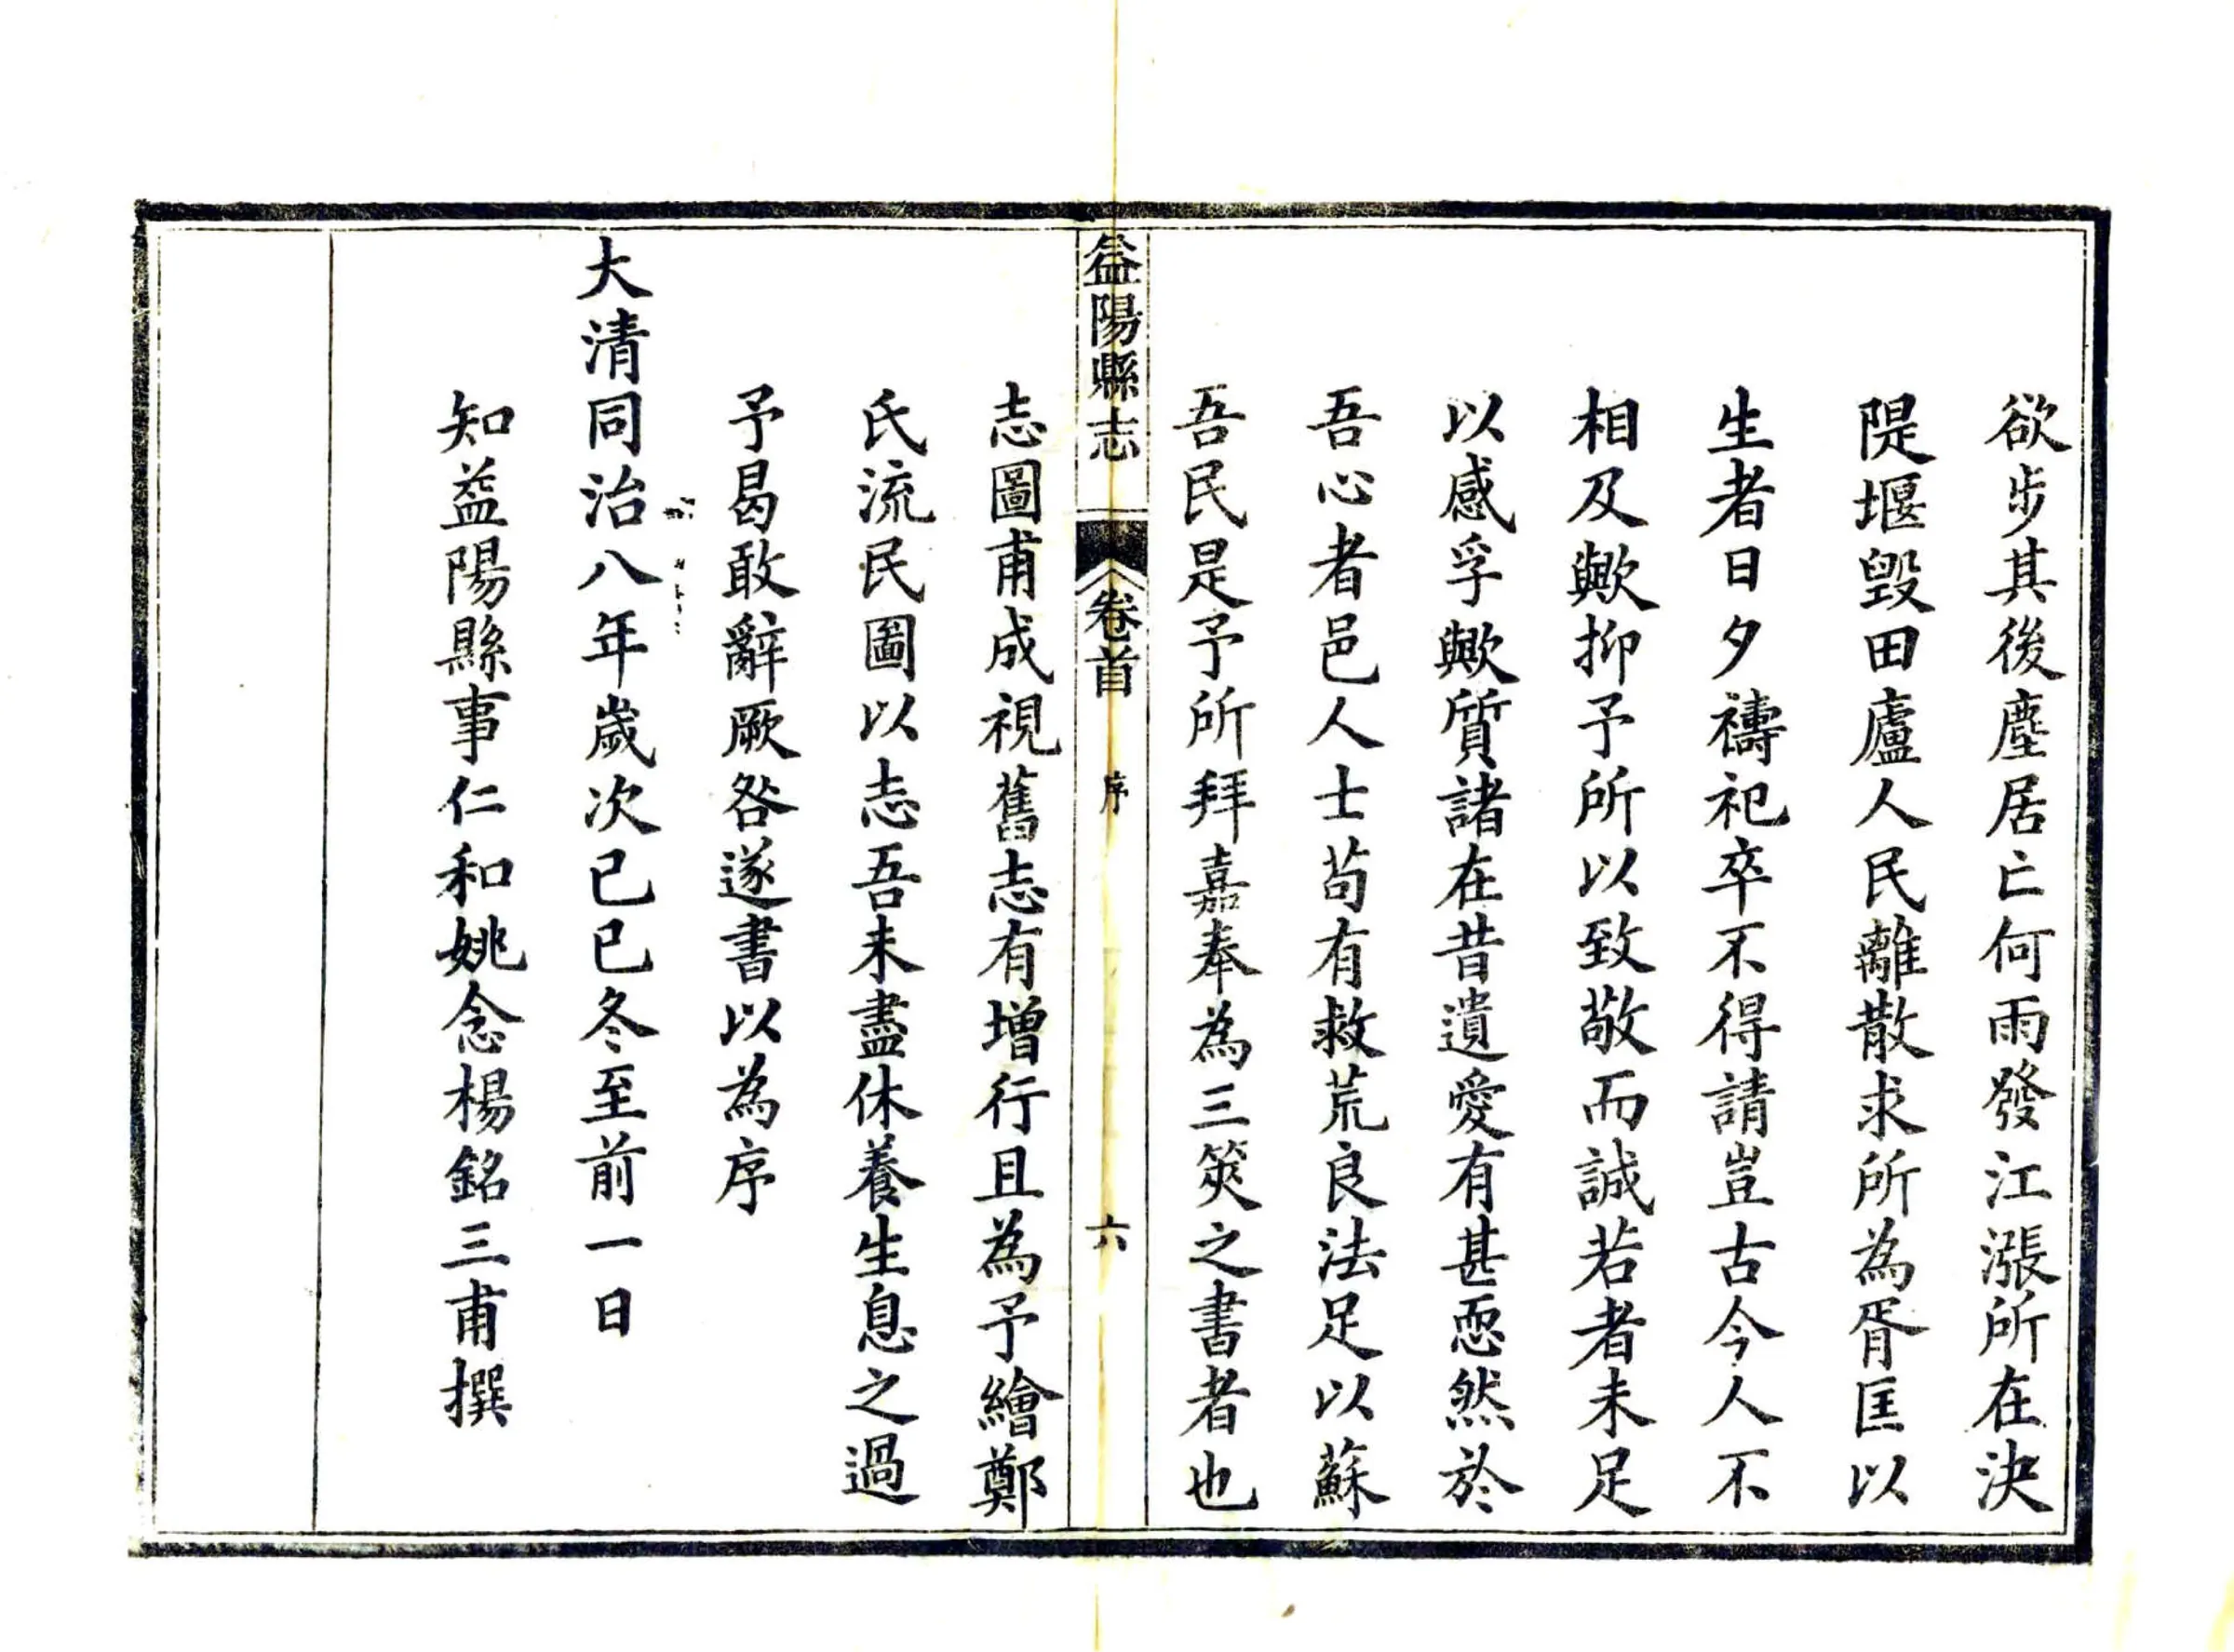 欲步其後塵居亡何雨發江漲所在決
隄堰毁田廬人民離散求所為胥匡以
生者日夕禱祀卒不得請豈古今人不
相及歟抑予所以致敬而誠若者未足
以感孚歟質諸在昔遺愛有甚恧然於
吾心者邑人士苟有救荒良法足以蘇
吾民是予所拜嘉奉為三筴之書者也
益陽縣志
卷首
序
六
志圖甫成視舊志有增行且為予繪鄭
氏流民圖以志吾未盡休養生息之過
予曷敢辭厥咎遂書以為序
大清同治八年歲次己巳冬至前一日
知益陽縣事仁和姚念楊銘三甫撰